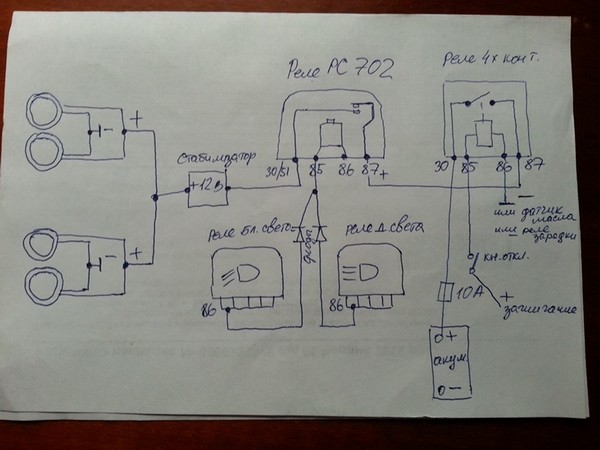 Реле РС 702
Реле 4х конт.
+
-
Стабилизатор
+12в
30/51
85
86
87
+
30
85
86
87
-
или датчик
масла
или реле
зарядки
Реле бл. света
диоды
реле д. света
86
86
+
-
кн. откл.
10А
+
зажигание
+
акум.
-